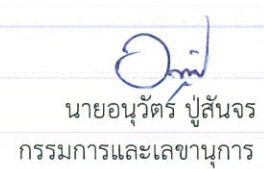 นายอนุวัตร์ ปู่สันจร
กรรมการและเลขานุการ